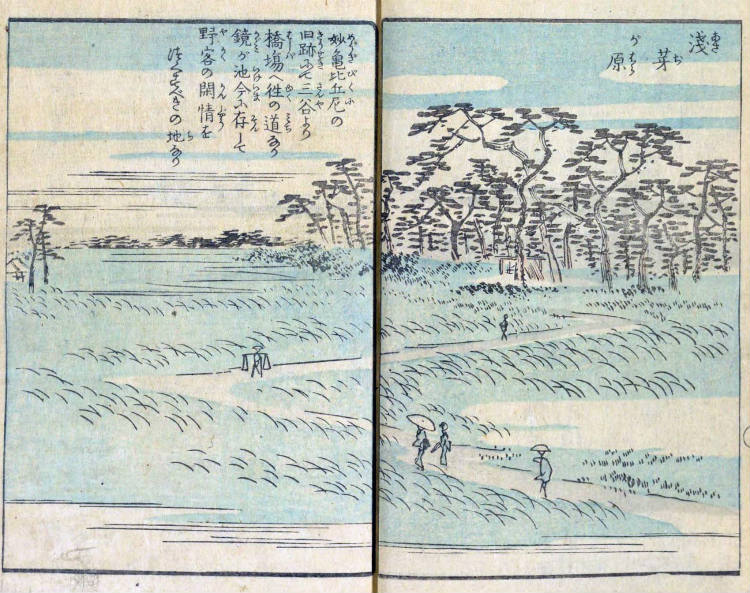 淺芽が原
妙亀比丘尼の
旧跡にて三谷より
橋塲へ往の道なり
鏡が池今に存して
野客の閑情を
つくすべきの地なり